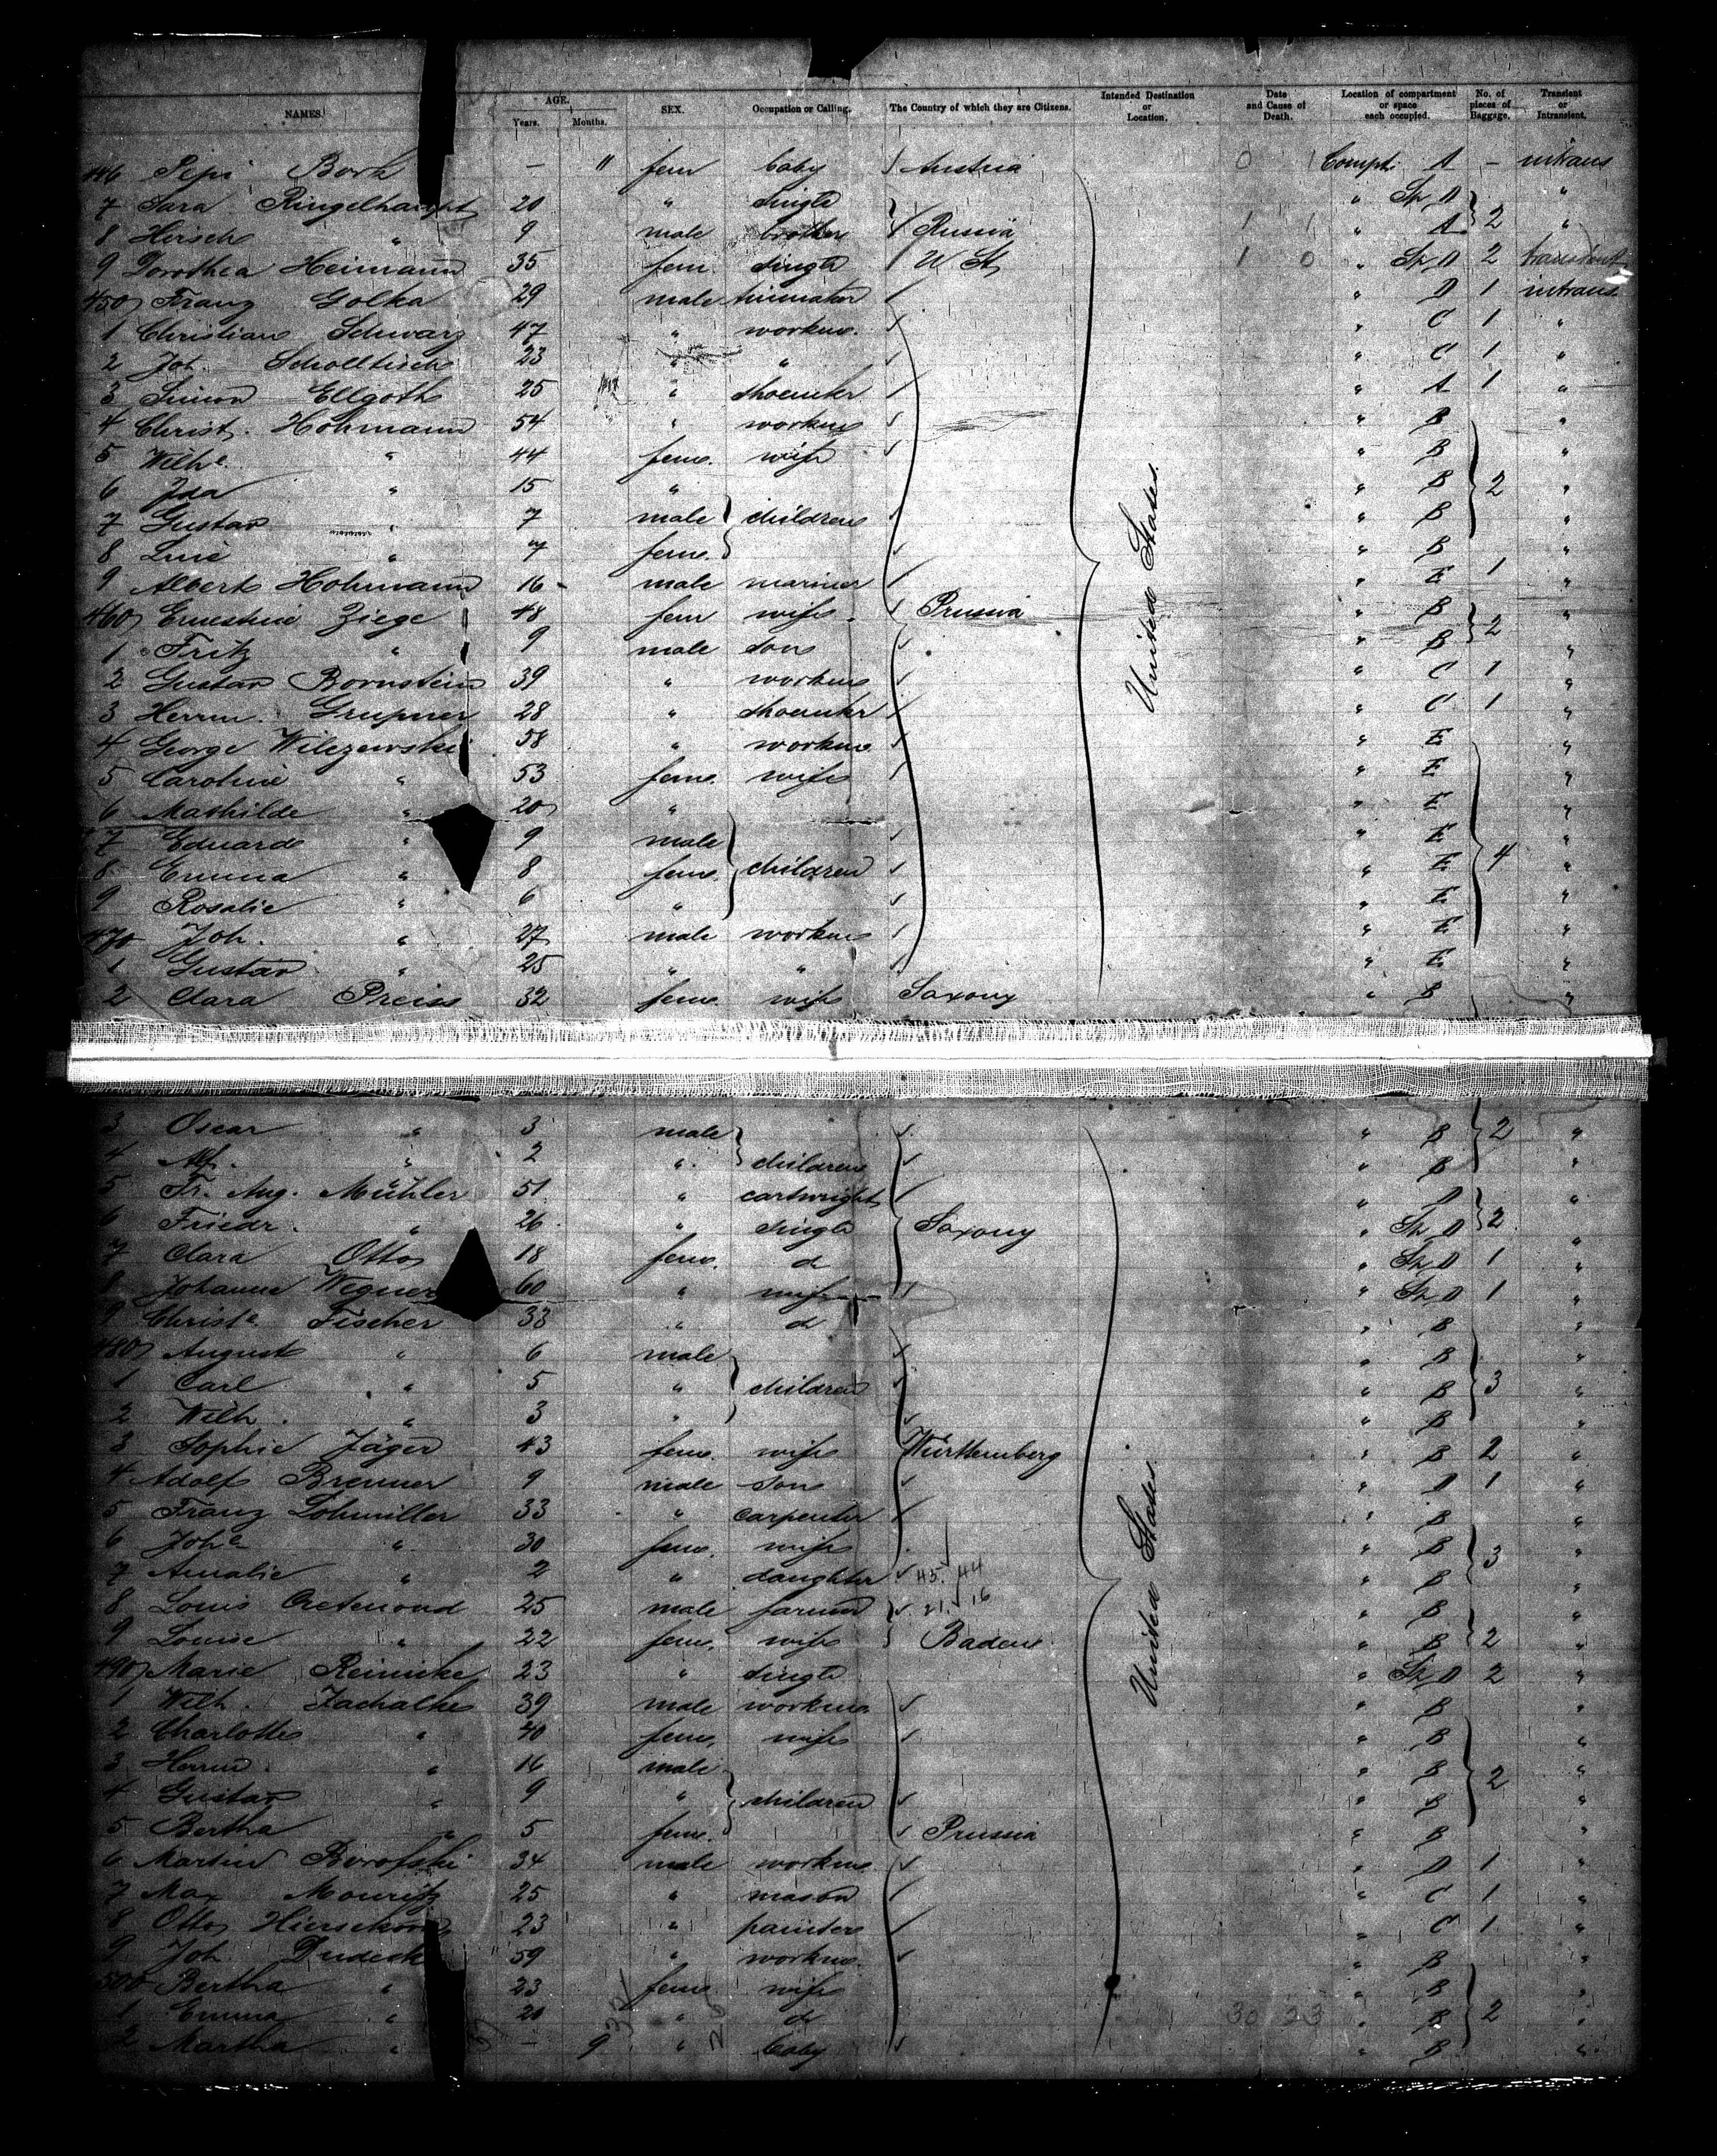 NAMES. AGE. Years. Months. SEX. Occupation or Calling. The Country of which they are Citizens. Intended Destination or Location. Date and Cause of Death. Location of compartment or space each occupied. No. of pieces of Baggage. Transient or Intransient.
446 Pepi Bork — 11 fem baby Austria 0 1 Compt. A — intrans
7 Sara Ringelhaupt 20 " single " Sp. D "
8 Hersch " 9 male brother Russia 1 1 " A 2 "
9 Dorothea Heimann 35 fem. single U St 1 0 " Sp. D 2 transient
450 Franz Golka 29 male " D 1 intrans
1 Christian Schwarz 47 " workm. " C 1 "
2 Joh. Scholltisch 23 " " " C 1 "
3 Simon Ellgoth 25 " shoemkr " A 1 "
4 Christ. Hohmann 54 " workm " B "
5 Wilhe. " 44 fem. wife " B "
6 Ida " 15 " " B 2 "
7 Gustav " 7 male children " B "
8 " fem. " B "
9 Albert Hohmann 16 male mariner " E 1 "
460 Ernestine Ziege 48 fem wife Prussia " B "
1 Fritz " 9 male son " B 2 "
2 Gustav Bornstein 39 " workm " C 1 "
3 Herrm. Grupner 28 " shoemkr " C 1 "
4 George Wilczewski 58 " workm " E "
5 Caroline " 53 fem. wife " E "
6 Mathilde " 20 " " E "
7 Eduard " 9 male " E "
8 Emma " 8 fem. children " E 4 "
9 Rosalie " 6 " " E "
470 Joh. " 27 male workm " E "
1 Gustav " 25 " " " E "
2 Clara Preiss 32 fem. wife Saxony " B "
United States.
3 Oscar " 3 male " B 2 "
4 Alf. " 2 " children " B "
5 Fr. Aug. Mühler 51 " cartwright " D "
6 Friedr. " 26 " single Saxony " Sp. D 2 "
7 Clara Otto 18 fem. do " Sp. D 1 "
8 Johanne Wegner 60 " wife " Sp. D 1 "
9 Christe. Fischer 33 " do " B "
480 August " 6 male " B "
1 Carl " 5 " children " B 3 "
2 Wilh. " 3 " " B "
3 Sophie Jäger 43 fem. wife Württemberg " B 2 "
4 Adolf Brenner 9 male son " D 1 "
5 Franz Lohmiller 33 " carpenter " B "
6 Johe " 30 fem. wife " B 3 "
7 Amalie " 2 " daughter 45. 44 " B "
8 Louis 25 male farmer 21. 16 " B "
9 Louise " 22 fem. wife Baden " B 2 "
490 Marie Reinicke 23 " single " Sp. D 2 "
1 Wilh. Zachalke 39 male workm. " B "
2 Charlotte " 40 fem. wife " B "
3 Herrm. " 16 male " B 2 "
4 Gustav " 9 " children " B "
5 Bertha " 5 fem. Prussia " B "
6 Martin Borofski 34 male workm " D 1 "
7 Max Mouritz 25 " mason " C 1 "
8 Otto Hierschorn 23 " painter " C 1 "
9 Joh. Dudeck 59 " workm. " B "
500 Bertha " 23 fem. wife " B "
1 Emma " 20 " do 30 23 " B 2 "
2 Martha " — 9 " baby " B "
United States.